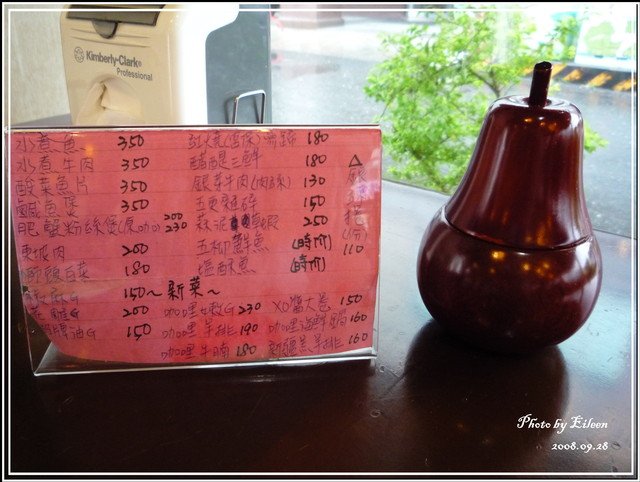 Kimberly-Clark
Professional
水煮魚 350
水煮牛肉 350
酸菜魚片 350
鹹魚煲 350
肥蟹粉絲煲(原咖) 200 230
東坡肉 200
白菜 180
150
200
油G 150
紅燒 蹄 180
醋 三鮮 180
銀芽牛肉(肉絲) 130
五更 150
蒜泥 蝦 250
五柳鮮魚 (時价)
塩酥魚 (時价)
△
(1份)
110
~新菜~
咖哩嫩G 230
咖哩羊排 190
咖哩牛腩 180
XO醬大卷 150
咖哩海鮮鍋 160
新疆羔羊排 160
Photo by Eileen
2008.09.28